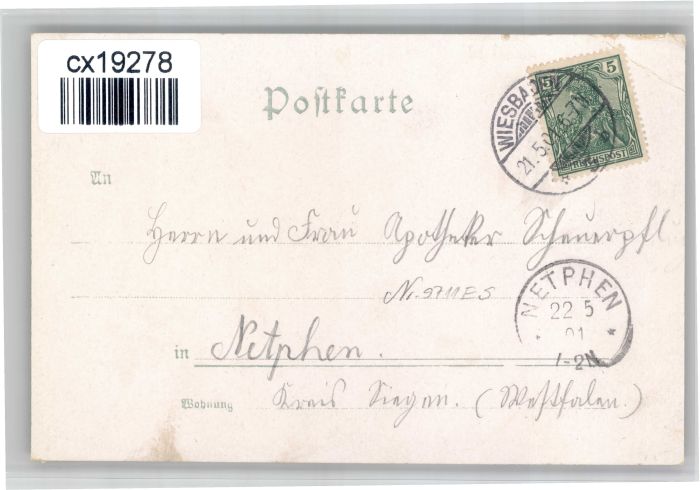 cx19278
Postkarte
WIESBADEN
21.5.01. 6-7N
5
REICHSPOST
An
Herrn und Frau Apotheker Scheuerpfl
Nr. 9711ES
NETPHEN
22 5
01
1-2N
in Netphen.
Wohnung Kreis Siegen. (Westfalen.)